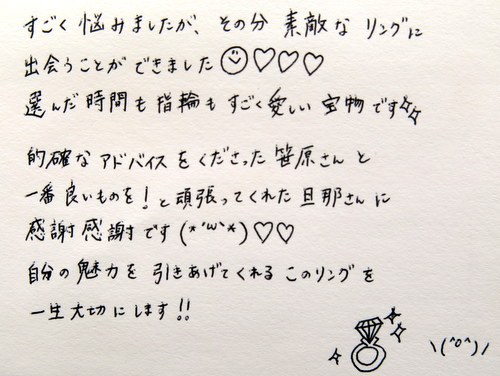 すごく悩みましたが、その分 素敵な リングに
出会うことができました☺♡♡♡
選んだ時間も指輪もすごく愛しい宝物です✨
的確なアドバイスをくださった笹原さんと
一番良いものを！と頑張ってくれた旦那さんに
感謝感謝です(*´ω`*)♡♡
自分の魅力を引きあげてくれるこのリングを
一生大切にします!!
\(^o^)/